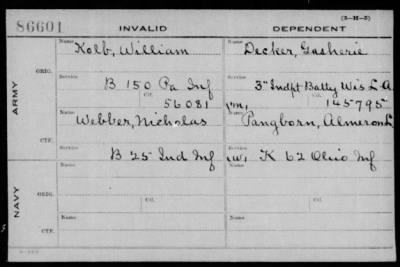 (3-H-5)
86601 INVALID DEPENDENT
Name Kolb, William Name Decker, Gasherie
ORIG.
Service B 150 Pa Inf Service 3" Indpt Batty Wis L A
Ctf. 56081 Ctf. 145795
ARMY
Name Webber, Nicholas Name Pangborn, Almeron L
CTF.
Service B 25 Ind Inf Service (W) K 62 Ohio Inf
Name Name
ORIG.
Service Service
NAVY
Name Name
CTF.